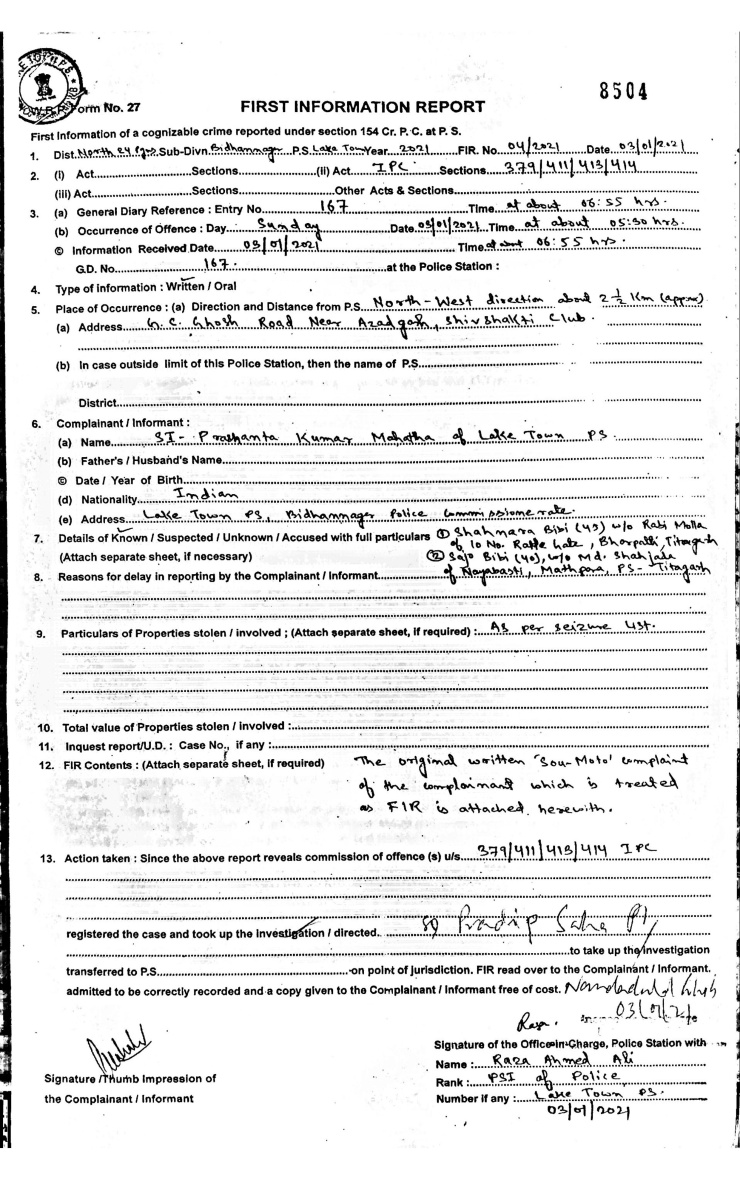 8504
Form No. 27 FIRST INFORMATION REPORT
First Information of a cognizable crime reported under section 154 Cr. P. C. at P. S.
1. Dist. North 24 Pgs Sub-Divn. Bidhannager P.S. Lake Town Year 2021 FIR. No. 04/2021 Date 03/01/2021
2. (i) Act Sections (ii) Act IPC Sections 379/411/413/414
(iii) Act Sections Other Acts & Sections
3. (a) General Diary Reference : Entry No. 167 Time at about 06:55 hrs.
(b) Occurrence of Offence : Day Sunday Date 03/01/2021 Time at about 05:30 hrs.
© Information Received Date 03/01/2021 Time at about 06:55 hrs.
G.D. No. 167. at the Police Station :
4. Type of information : Written / Oral
5. Place of Occurrence : (a) Direction and Distance from P.S. North-West direction about 2 ½ Km (approx)
(a) Address G. C. Ghosh Road Near Azadgarh, Shivshakti Club.
(b) In case outside limit of this Police Station, then the name of P.S.
District
6. Complainant / Informant :
(a) Name SI- Prashanta Kumar Mahatha of Lake Town PS
(b) Father's / Husband's Name
© Date / Year of Birth
(d) Nationality Indian
(e) Address Lake Town PS, Bidhannager Police Commissionerate.
7. Details of Known / Suspected / Unknown / Accused with full particulars ① Shahnara Bibi (45) w/o Rabi Molla
of 10 No. Gate, Titagarh
(Attach separate sheet, if necessary) ② Bibi (40), w/o Md. Shahjala
8. Reasons for delay in reporting by the Complainant / Informant of Nayabasti, Mathpara, PS- Titagarh
9. Particulars of Properties stolen / involved ; (Attach separate sheet, if required) : As per seizure list.
10. Total value of Properties stolen / involved :
11. Inquest report/U.D. : Case No., if any :
12. FIR Contents : (Attach separate sheet, if required) The original written 'Sou-Moto' complaint
of the complainant which is treated
as FIR is attached herewith.
13. Action taken : Since the above report reveals commission of offence (s) u/s. 379/411/413/414 IPC
registered the case and took up the investigation / directed. Pradip Saha
to take up the investigation
transferred to P.S. on point of jurisdiction. FIR read over to the Complainant / Informant.
admitted to be correctly recorded and a copy given to the Complainant / Informant free of cost.
Signature of the Officer-in-Charge, Police Station with
Name : Raza Ahmed Ali
Signature /Thumb Impression of
Rank : PSI of Police
the Complainant / Informant
Number if any : Lake Town PS.
03/01/2021